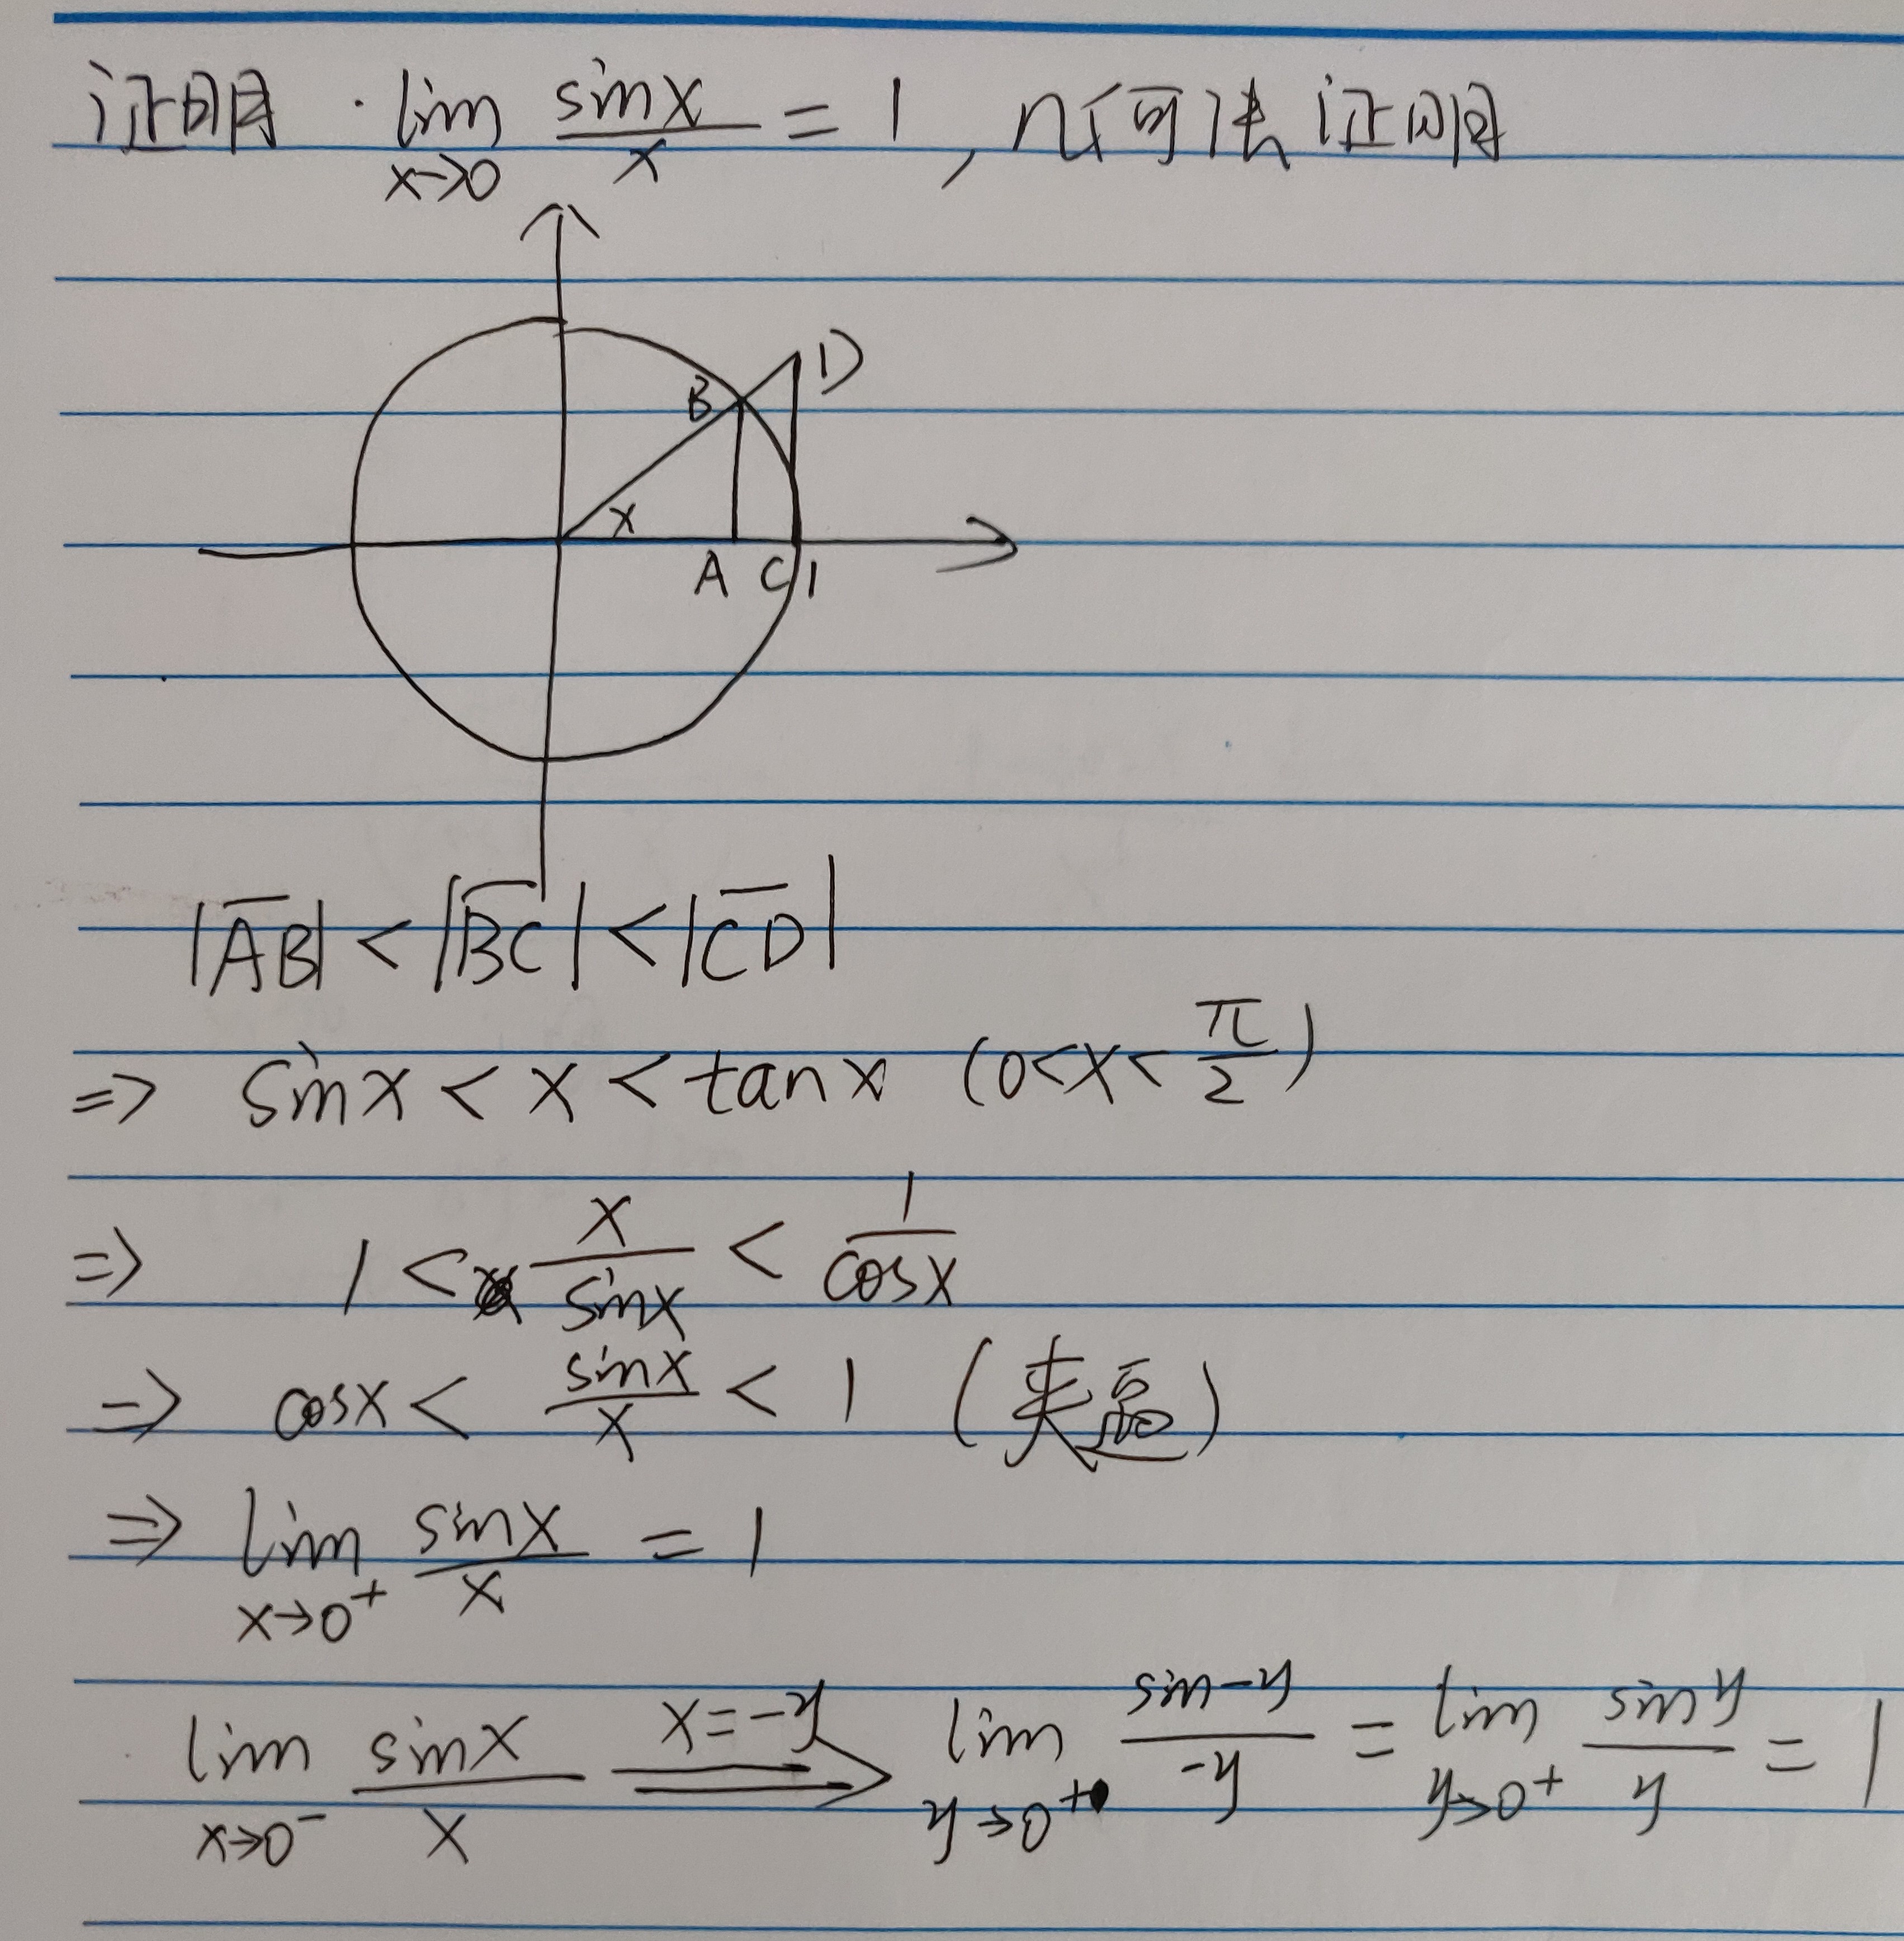 证明 · lim x→0 sinx/x = 1, 几何法证明
B D
x
A C 1
|AB| < |BC| < |CD|
⇒ sinx < x < tanx (0<x<π/2)
⇒ 1 < x/sinx < 1/cosx
⇒ cosx < sinx/x < 1 (夹逼)
⇒ lim x→0⁺ sinx/x = 1
lim x→0⁻ sinx/x x=-y ⇒ lim y→0⁺ sin-y/-y = lim y→0⁺ siny/y = 1